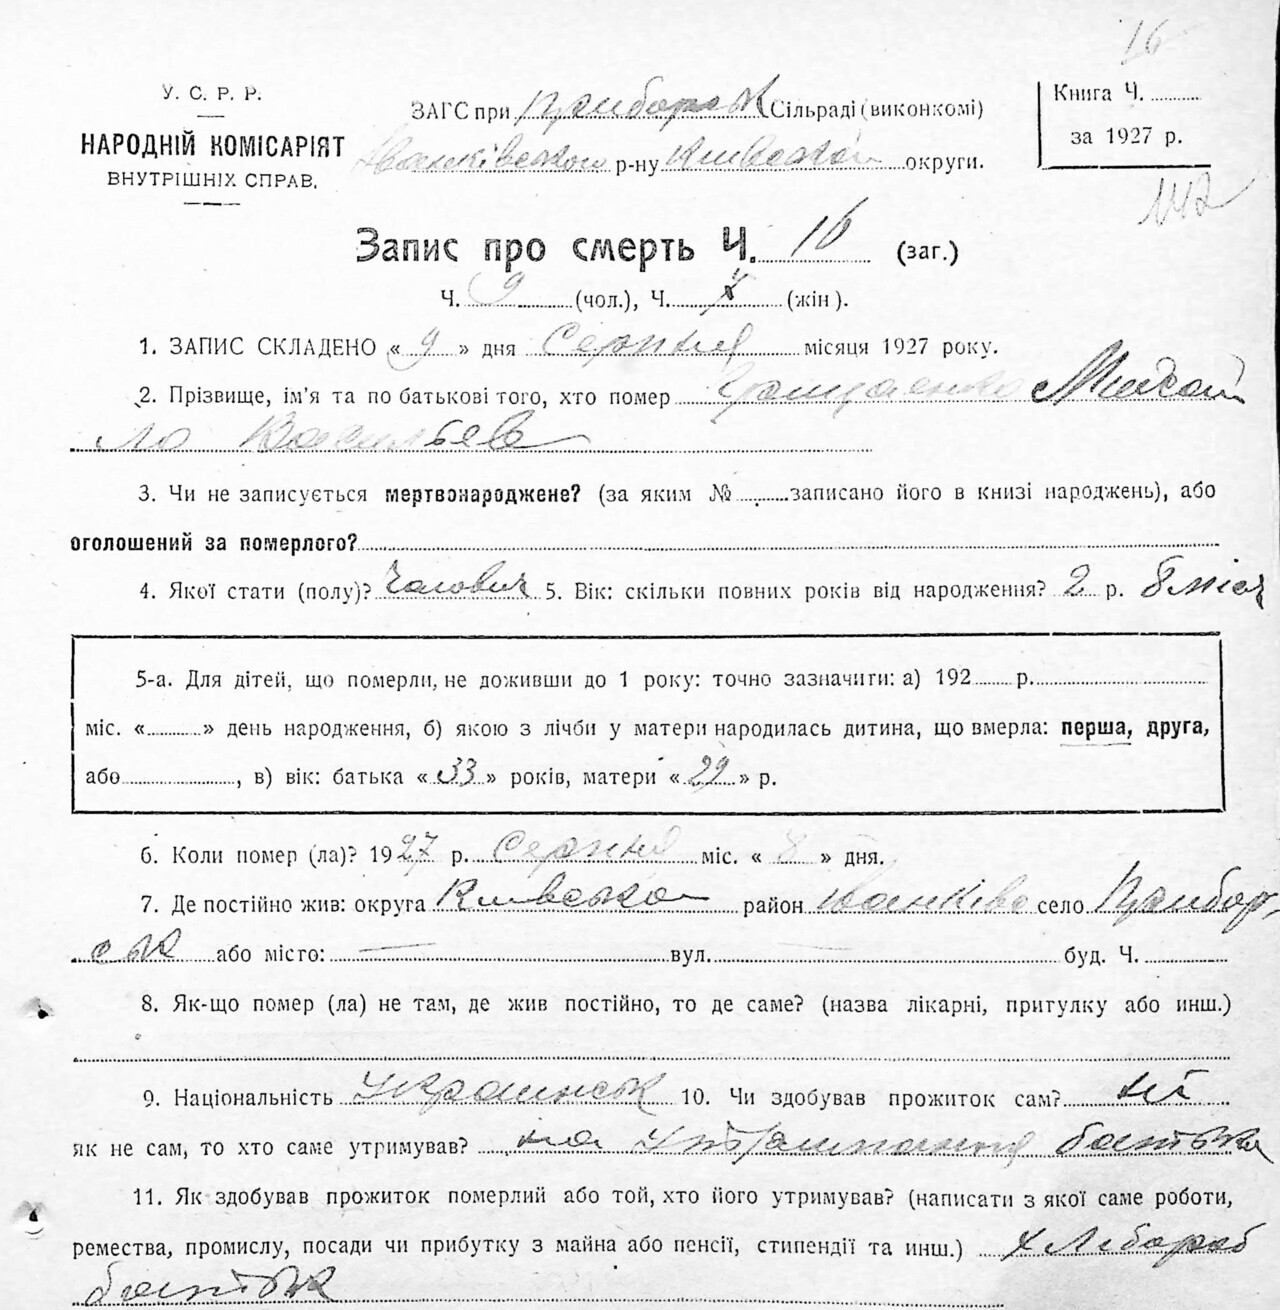 16
У. С. Р. Р.
НАРОДНІЙ КОМІСАРІЯТ
ВНУТРІШНІХ СПРАВ.
ЗАГС при Приборськ Сільраді (виконкомі)
Іванківською р-ну Київської округи.
Книга Ч.
за 1927 р.
142
Запис про смерть Ч. 16 (заг.)
Ч. 9 (чол.), Ч. (жін).
1. ЗАПИС СКЛАДЕНО « 9 » дня Серпня місяця 1927 року.
2. Прізвище, ім'я та по батькові того, хто помер Михай
ло Васильев
3. Чи не записується мертвонароджене? (за яким № записано його в книзі народжень), або
оголошений за померлого?
4. Якої стати (полу)? Чоловіч 5. Вік: скільки повних років від народження? 2 р. 8 міся
5-а. Для дітей, що померли, не доживши до 1 року: точно зазначити: а) 192 р.
міс. « » день народження, б) якою з лічби у матери народилась дитина, що вмерла: перша, друга,
або , в) вік: батька « 33 » років, матери « 29 » р.
6. Коли помер (ла)? 1927 р. Серпня міс. « 8 » дня.
7. Де постійно жив: округа Київська район Іванківс село Прибор-
ськ або місто: — вул. буд. Ч.
8. Як-що помер (ла) не там, де жив постійно, то де саме? (назва лікарні, притулку або инш.)
9. Національність Украинськ 10. Чи здобував прожиток сам? ні
як не сам, то хто саме утримував? на батька
11. Як здобував прожиток померлий або той, хто його утримував? (написати з якої саме роботи,
ремества, промислу, посади чи прибутку з майна або пенсії, стипендії та инш.) хлібороб
батьк